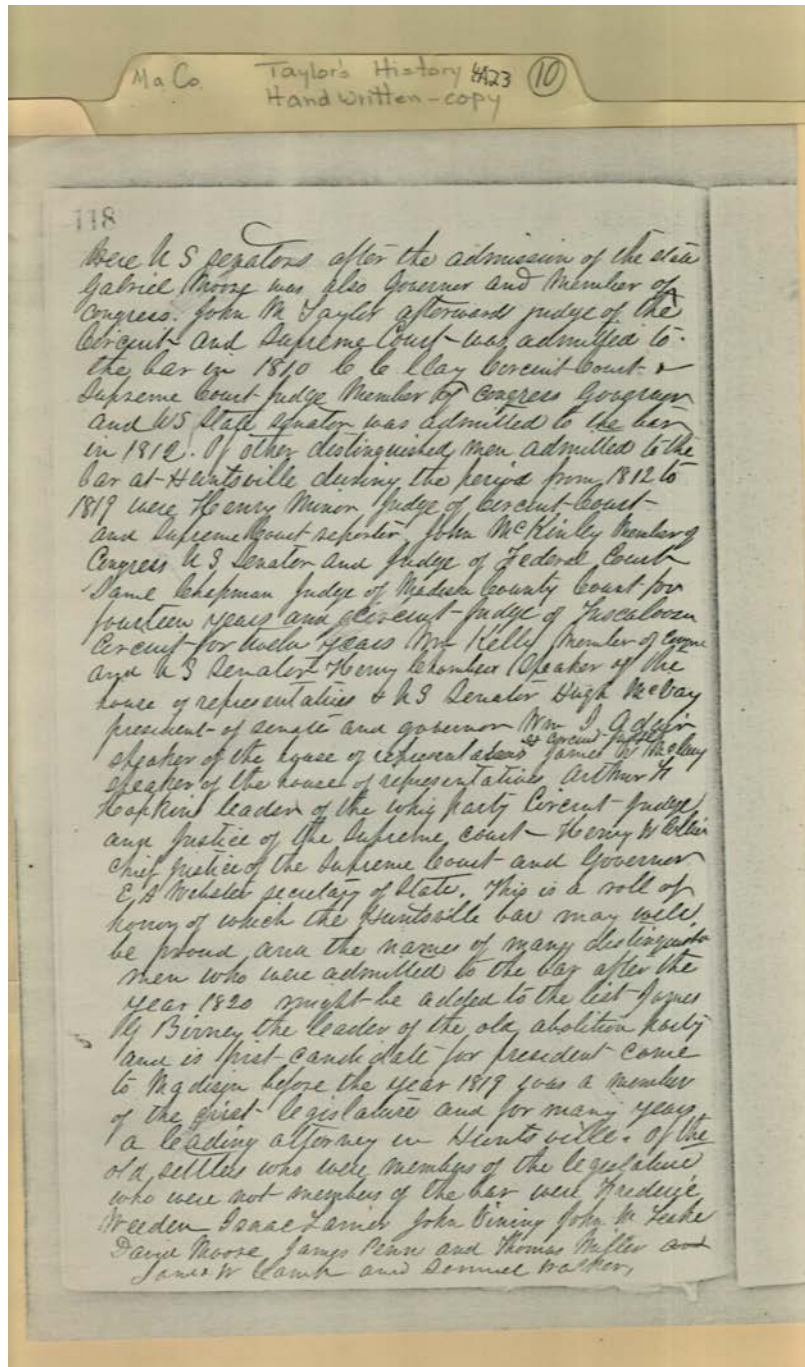 Ma. Co. Taylor's History 4A23 10
Handwritten-copy
118
Were U S senators after the admission of the state
Gabriel Moore was also Governor and Member of
Congress. John M Taylor afterwards judge of the
Circuit and Supreme Court was admitted to
the bar in 1810 C C Clay Circuit Court &
Supreme Court Judge Member of Congress Governor
and US State senator was admitted to the bar
in 1812. Of other distinguished men admitted to the
bar at Huntsville during the period from 1812 to
1819 were Henry Minor Judge of Circuit Court
and Supreme Court reporter John McKinley Member of
Congress U S Senator and Judge of Federal Court
Saml Chapman Judge of Madison County Court for
fourteen years and circuit Judge of Tuscaloosa
Circuit for twelve years Wm Kelly Member of
and U S Senator Henry Chambers Speaker of the
house of representatives & U S Senator Hugh McVay
president of senate and governor Wm I Adair
speaker of the house of representatives & Circuit Judge James W McClung
speaker of the house of representatives Arthur F
Hopkins leader of the whig party Circuit Judge
and Justice of the Supreme court Henry W Collier
chief Justice of the Supreme Court and Governor
E A Webster secretary of State. This is a roll of
honor of which the Huntsville bar may well
be proud and the names of many
men who were admitted to the bar after the
year 1820 might be added to the list James
G Birney the leader of the old abolition party
and is first candidate for president came
to Madison before the year 1819 was a member
of the first legislature and for many years
a leading attorney in Huntsville. Of the
old settlers who were members of the legislature
who were not members of the bar were Frederic
Weeden Isaac Lanier John Vining John M Leake
David Moore James Penn and Thomas Miller and
James W Camp and Samuel Walker,